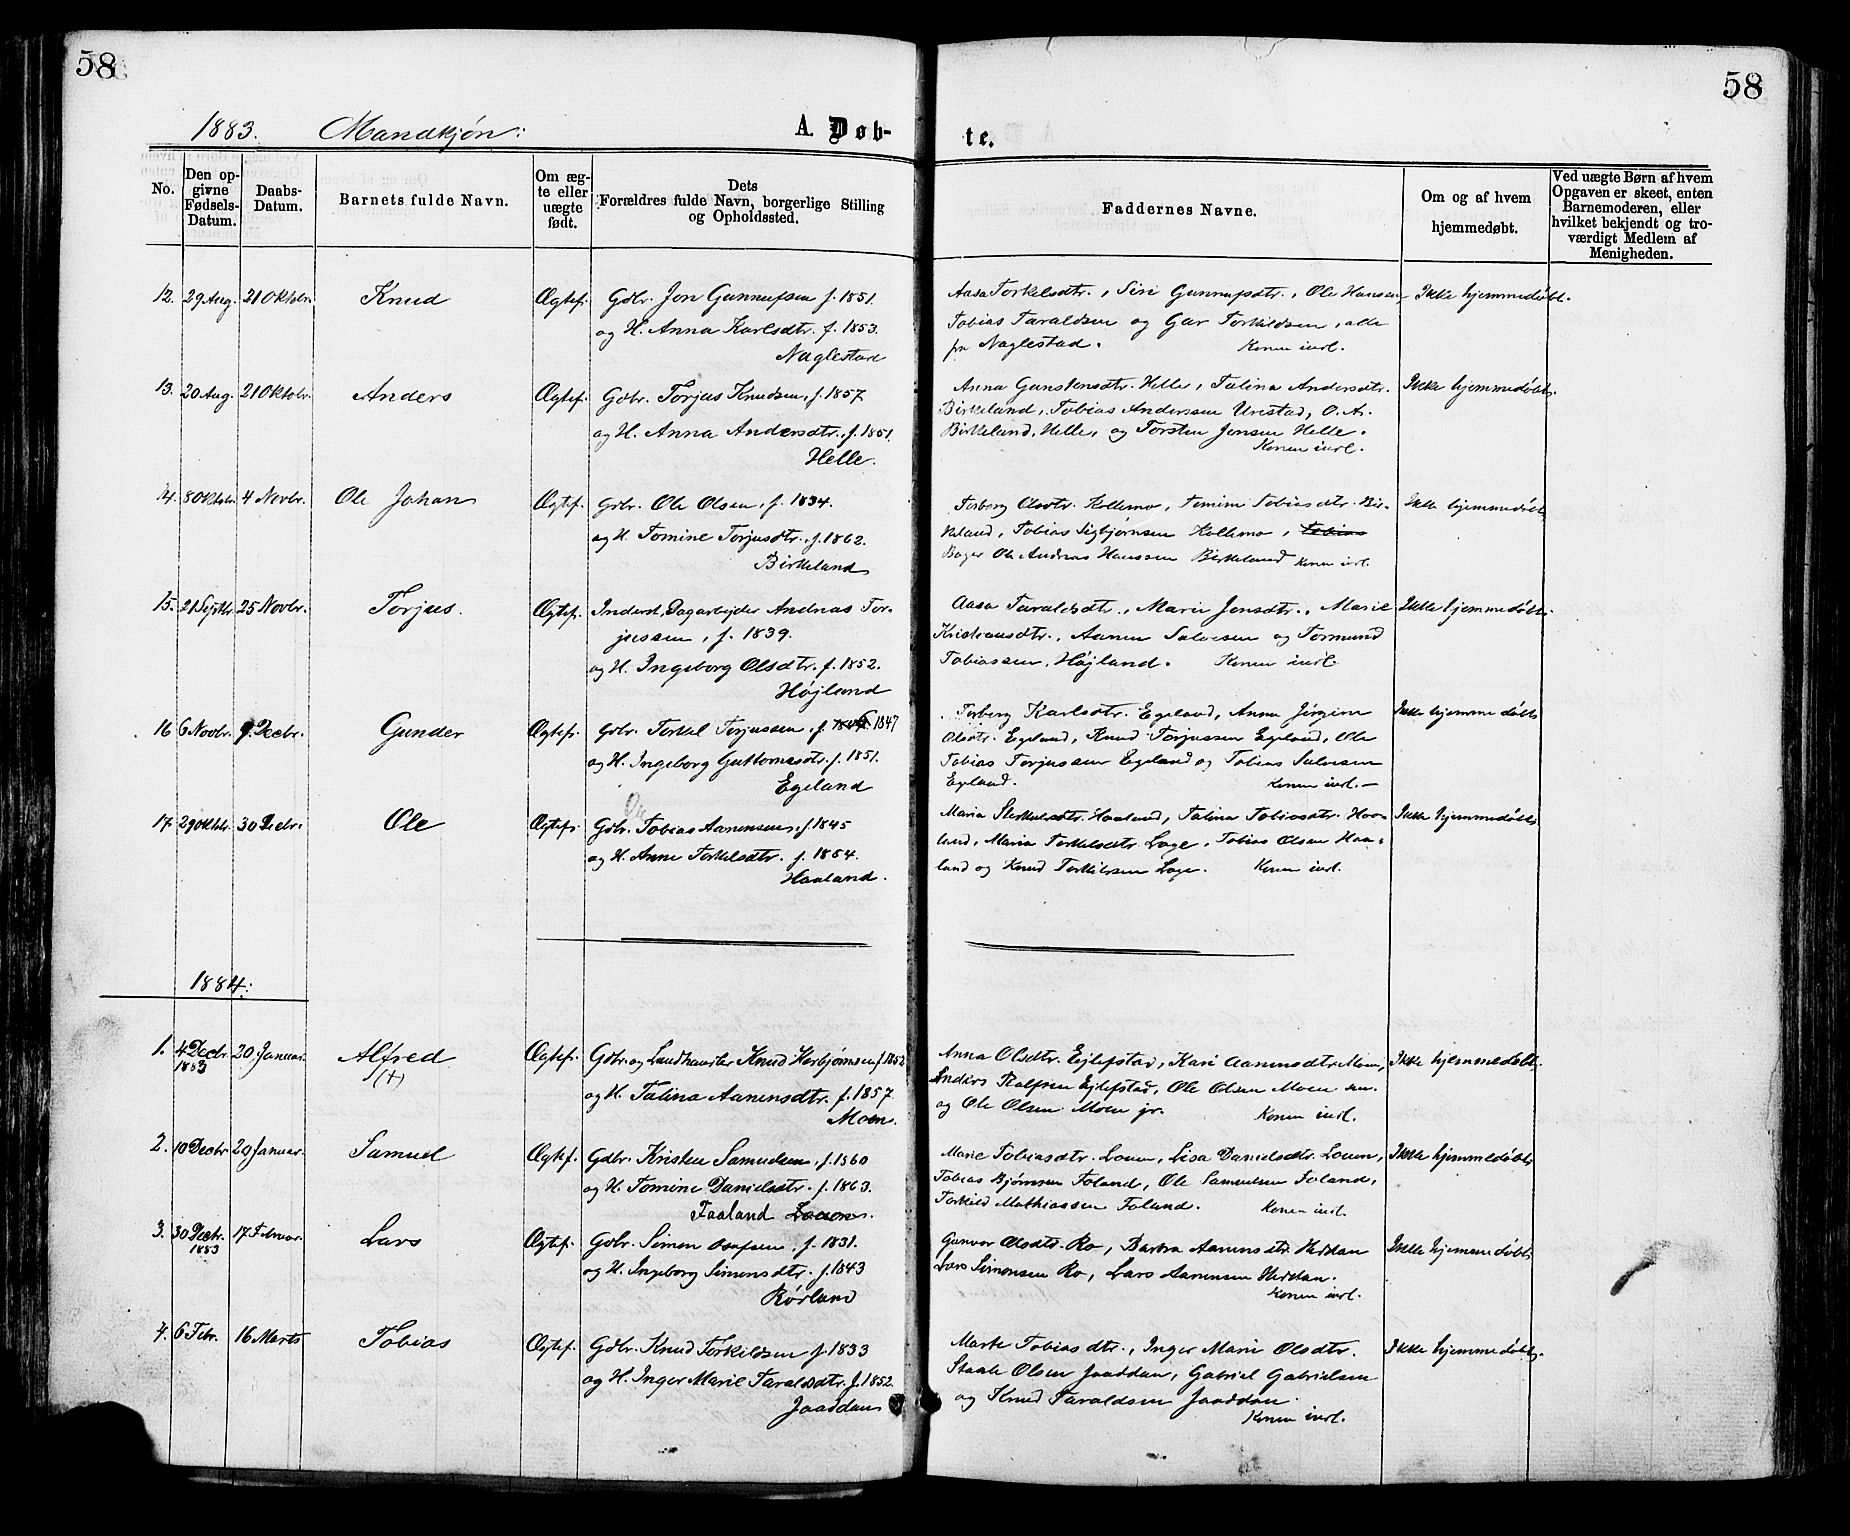 58
58
1883. Mandkjøn:
A. Døb-
te.
No.
Den op-
givne
Fødsels-
Datum.
Daabs-
Datum.
Barnets fulde Navn.
Om æg-
te eller
uægte
født.
Dets
Forældres fulde Navn, borgerlige Stilling
og Opholdssted.
Faddernes Navne.
Om og af hvem
hjemmedøbt.
Ved uægte Børn af hvem
Opgaven er skeet, enten
Barnemoderen, eller
hvilket bekjendt og tro-
værdigt Medlem af
Menigheden.
12. 29 Aug. 21 Oktobr. Knud Ægtef. Gdbr. Jon Gunnufsen f. 1851.
og H. Anna Karlsdtr. f. 1853.
Naglestad
Aasa Torkelsdtr., Siri Gunnufsdtr., Ole Hansen
Tobias Taraldsen og Gar Torkildsen, alle
fra Naglestad. Konen indl.
Ikke hjemmedøbt.
13. 20 Aug. 21 Oktobr. Anders Ægtef. Gdbr. Torjus Knudsen, f. 1857
og H. Anna Andersdtr., f. 1851.
Helle.
Anna Gunstensdtr. Helle, Talina Andersdtr.
Birkeland, Tobias Anderssen Urestad, O. A.
Birkeland, Helle, og Torsten Jensen Helle.
Konen indl.
Ikke hjemmedøbt.
14. 8 Oktobr. 4 Novbr. Ole Johan Ægtef. Gdbr. Ole Olsen, f. 1834.
og H. Tomine Torjusdtr., f. 1862.
Birkeland
Torborg Olsdtr. Kollemo, Tomine Tobiasdtr. Bir-
keland, Tobias Sigbjørnsen Kollemo, Tobias
Ole Andreas Hanssen Birkeland Konen indl.
Ikke hjemmedøbt
15. 21 Septbr. 25 Novbr. Torjus. Ægtef. Inderst, Dagarbejder Andreas Tor-
jussen, f. 1839.
og H. Ingeborg Olsdtr. f. 1852.
Højland
Aasa Taraldsdtr., Marie Jensdtr., Marie
Kristiansdtr., Aanen Salvesen og Tormund
Tobiassen, Højland. Konen indl.
Ikke hjemmedøbt.
16 6 Novbr. 9. Decbr. Gunder Ægtef. Gdbr. Torkel Torjussen, f. 1847
og H. Ingeborg Guttormsdtr. f. 1851.
Egeland
Torborg Karlsdtr. Egeland, Anna Jørgine
Olsdtr. Egeland, Knud Torjussen Egeland, Ole
Tobias Torjussen Egeland og Tobias Salvesen
Egeland. Konen indl.
Ikke hjemmedøbt
17. 29 Oktbr. 30 Decbr. Ole Ægtef. Gdbr. Tobias Aanensen, f. 1845
og H. Anne Torkelsdtr. f. 1854.
Haaland.
Maria Sterkelsdtr. Haaland, Talina Tobiasdtr. Haa-
land, Maria Torkelsdtr. Loge, Tobias Olsen Haa-
land og Knud Torkilsen Loge. Konen indl.
Ikke hjemmedøbt
1884:
1. 4 Decbr. 1883 20 Januar. Alfred (+) Ægtef. Gdbr. og Landhandler Knud Herbjørnsen f. 1852
og H. Talina Aanensdtr. f. 1857.
Moen.
Anna Olsdtr. Ejlefstad, Kari Aanensdtr. Moen,
Anders Rolfsen Ejlefstad, Ole Olsen Moen sen.
og Ole Olsen Moen jr. Konen indl.
Ikke hjemmedøbt.
2. 10 Decbr 20 Januar. Samuel Ægtef. Gdbr. Kristen Samuelsen, f. 1860
og H. Tomine Danielsdtr. f. 1863.
Faaland Louen.
Marie Tobiasdtr. Louen, Lisa Danielsdtr. Louen,
Tobias Bjørnsen Foland, Ole Samuelsen Foland,
Torkild Mathiassen Foland. Konen indl.
Ikke hjemmedøbt
3. 30 Decbr. 1883 17 Februar. Lars Ægtef. Gdbr. Simon Osufsen, f. 1831.
og H. Ingeborg Simonsdtr. f. 1843
Rørland
Gunvor Olsdtr. Ro, Barbra Aanensdtr. Heddan
Lars Simonsen Ro, Lars Aanensen Heddan.
Konen indl.
Ikke hjemmedøbt
4. 6 Febr. 16 Marts Tobias Ægtef. Gdbr. Knud Torkildsen f. 1833
og H. Inger Marie Taraldsdtr. f. 1852.
Jaaddan
Marte Tobiasdtr., Inger Marie Olsdtr.
Staale Olsen Jaaddan, Gabriel Gabrielsen
og Knud Taraldsen Jaaddan.
Konen indl.
Ikke hjemmedøbt.